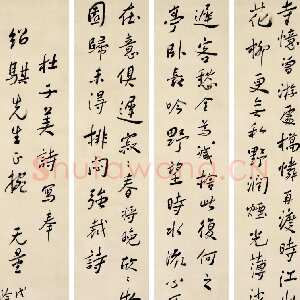 寺憶曾遊處橋憐再渡時江山
花柳更無私野潤煙光薄沙
遲客愁全為減捨此復何之
亭臥長吟野望時水流心不
在意俱遲寂〻春將晚欣〻物
園歸未得排悶強裁詩
杜子美詩寫奉
紹騏先生正腕 无量
Shufawang.cn